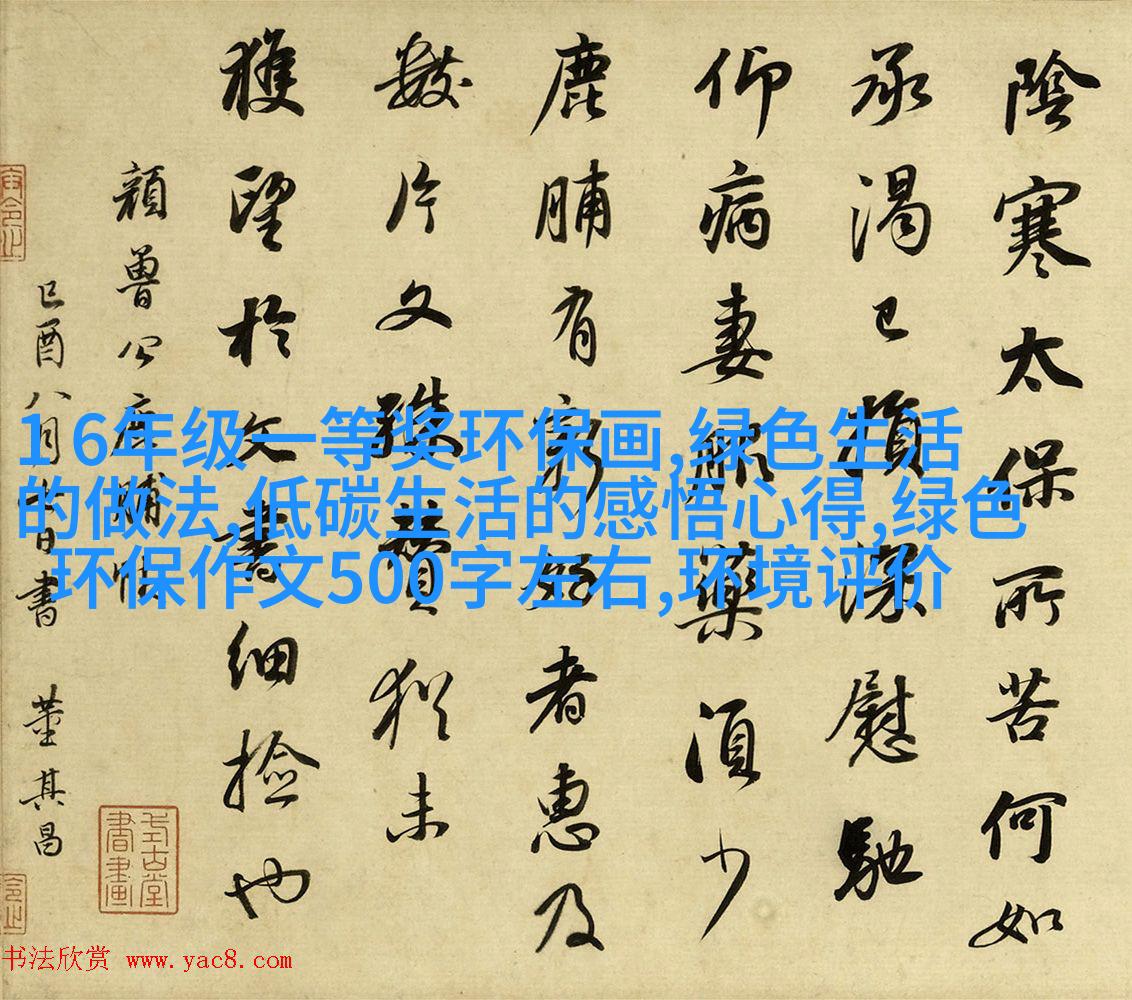 陰寒太保所苦何如
承渴已損深慰馳
仰病妻服藥須少
鹿脯有新好者惠及
數片文殊贊猶未
獲望於文書細撿也
顏魯公鹿脯帖
己酉八月日書 董其昌
1 6年级一等奖环保画,绿色生活
的做法,低碳生活的感悟心得,绿色
环保作文500字左右,环境评价
书法欣赏 www.yac8.com